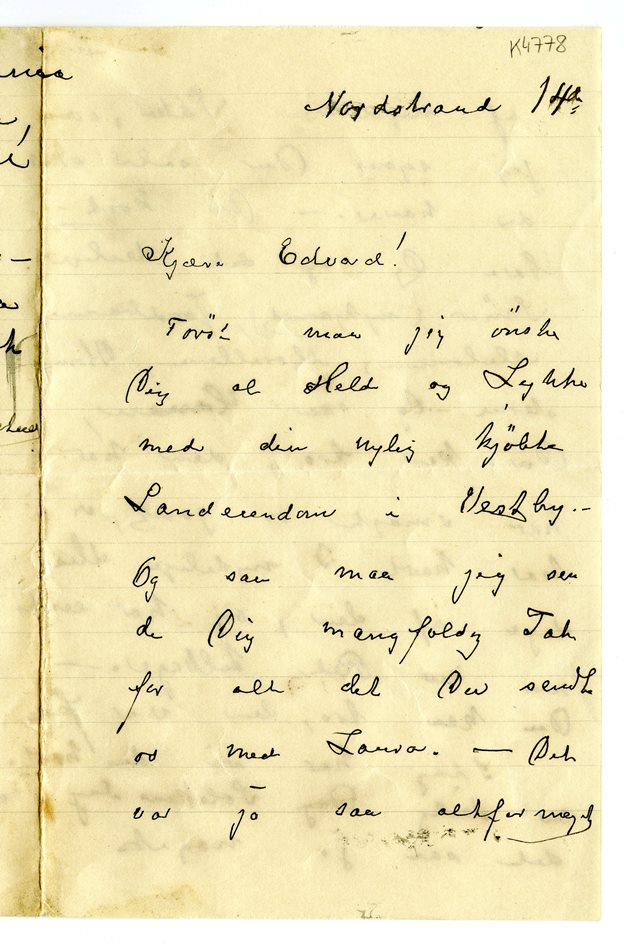 K4778
Nordstrand 14de
Kjære Edvard!
Først maa jeg önske
Dig al Held og Lykke
med din nylig kjöbte
Landeiendom i Vestby. –
Og saa maa jeg sen
de Dig mangfoldig Tak
for alt det Du sendte
os med Laura. — Det
var jo saa altformeget